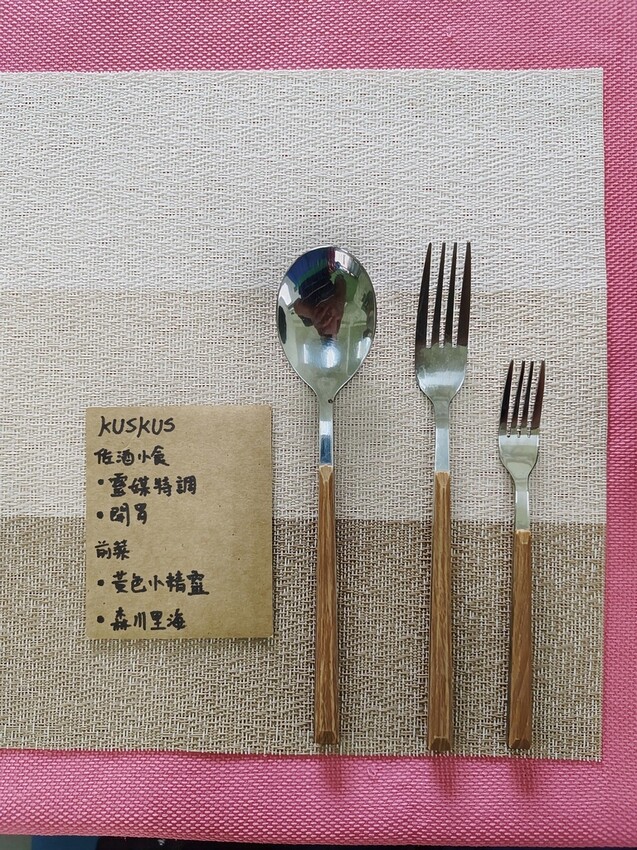 KUSKUS
佐酒小食
•靈媒特調
•開胃
前菜
•黃色小精靈
•森川里海